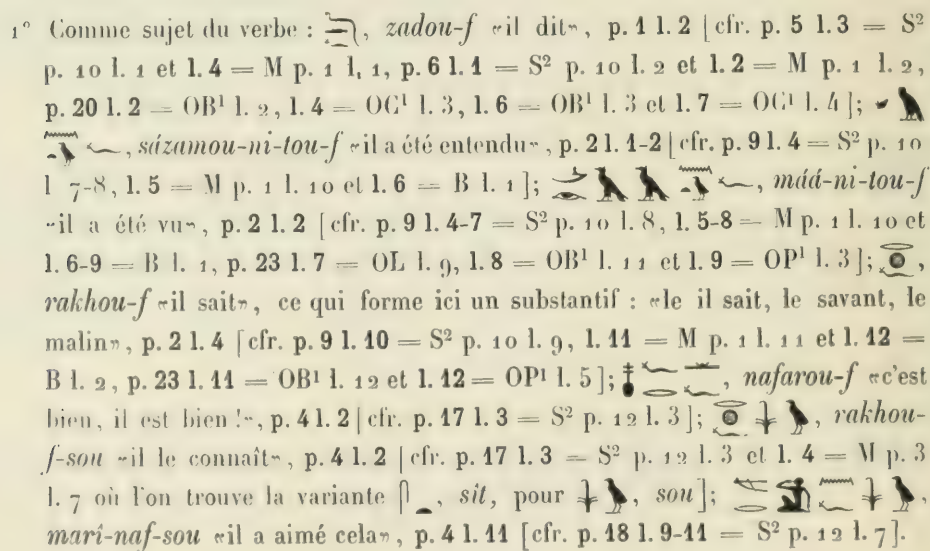 1° Comme sujet du verbe : , zadou-f «il dit», p. 1 l. 2 [cfr. p. 5 l. 3 = S²
p. 10 l. 1 et l. 4 = M p. 1 l. 1, p. 6 l. 1 = S² p. 10 l. 2 et l. 2 = M p. 1 l. 2,
p. 20 l. 2 = OB¹ l. 2, l. 4 = OC¹ l. 3, l. 6 = OB¹ l. 3 et l. 7 = OC¹ l. 4];
, sázamou-ni-tou-f «il a été entendu», p. 2 l. 1-2 [cfr. p. 9 l. 4 = S² p. 10
l 7-8, l. 5 = M p. 1 l. 10 et l. 6 = B l. 1]; , máá-ni-tou-f
«il a été vu», p. 2 l. 2 [cfr. p. 9 l. 4-7 = S² p. 10 l. 8, l. 5-8 = M p. 1 l. 10 et
l. 6-9 = B l. 1, p. 23 l. 7 = OL l. 9, l. 8 = OB¹ l. 11 et l. 9 = OP¹ l. 3]; ,
rakhou-f «il sait», ce qui forme ici un substantif : «le il sait, le savant, le
malin», p. 2 l. 4 [cfr. p. 9 l. 10 = S² p. 10 l. 9, l. 11 = M p. 1 l. 11 et l. 12 =
B l. 2, p. 23 l. 11 = OB¹ l. 12 et l. 12 = OP¹ l. 5]; , nafarou-f «c'est
bien, il est bien!», p. 4 l. 2 [cfr. p. 17 l. 3 = S² p. 12 l. 3]; , rakhou-
f-sou «il le connaît», p. 4 l. 2 [cfr. p. 17 l. 3 = S² p. 12 l. 3 et l. 4 = M p. 3
l. 7 où l'on trouve la variante , sît, pour , sou];
marî-naf-sou «il a aimé cela», p. 4 l. 11 [cfr. p. 18 l. 9-11 = S² p. 12 l. 7].